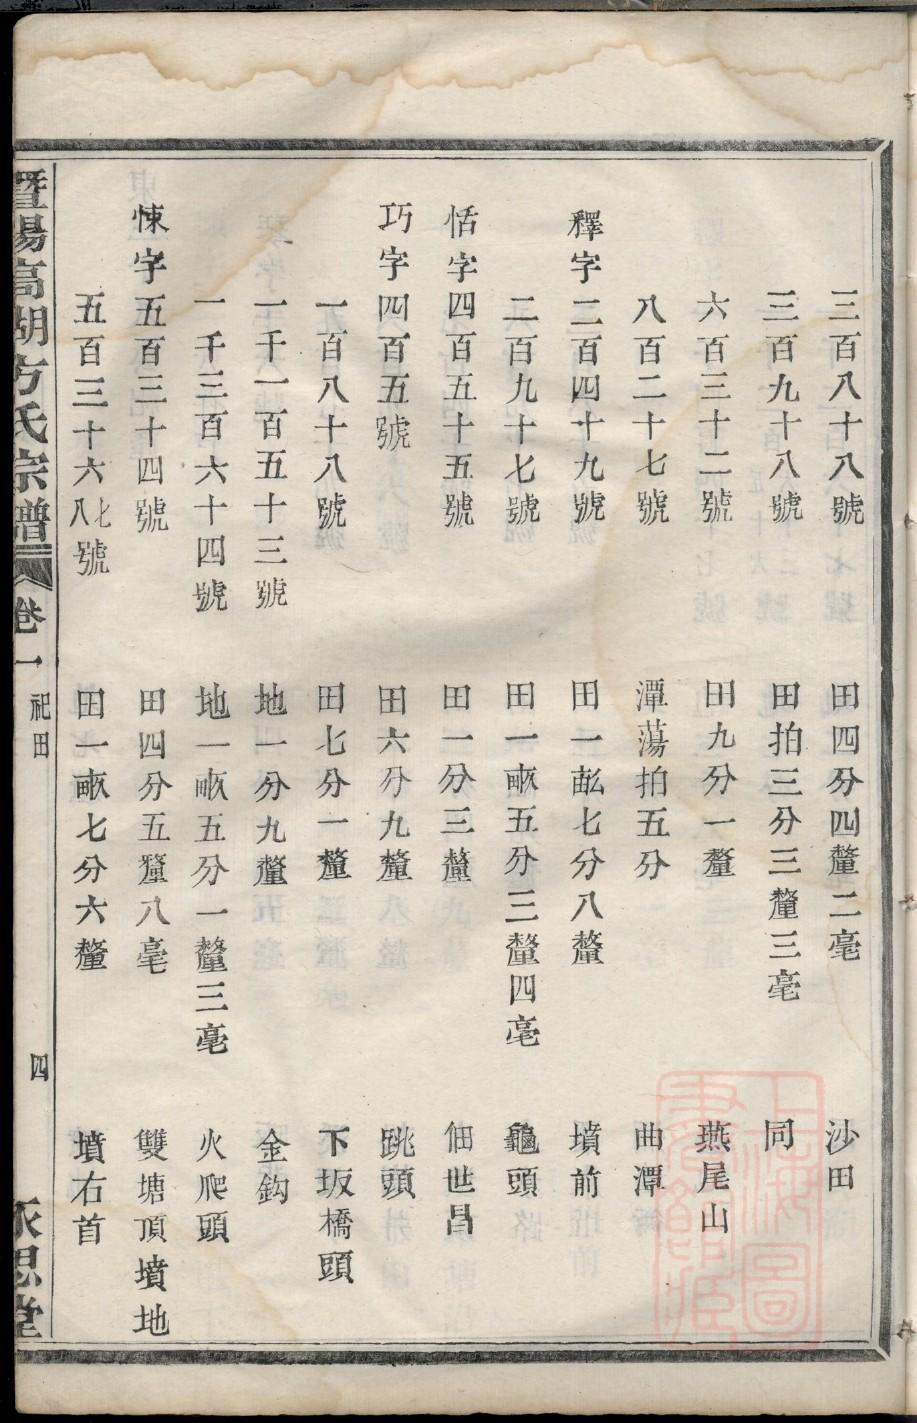 三百八十八號　田四分四釐二毫　沙田
三百九十八號　田拍三分三釐三毫　同
六百三十二號　田九分一釐　燕尾山
八百二十七號　潭蕩拍五分　曲潭
釋字二百四十九號　田一畝七分八釐　墳前
二百九十七號　田一畝五分三釐四毫　龜頭
恬字四百五十五號　田一分三釐　佃世昌
巧字四百五號　田六分九釐　跳頭
一百八十八號　田七分一釐　下坂橋頭
一千一百五十三號　地一分九釐　金鈎
一千三百六十四號　地一畝五分一釐三毫　火爬頭
悚字五百三十四號　田四分五釐八毫　雙塘頂墳地
五百三十六七八號　田一畝七分六釐　墳右首
暨陽高湖方氏宗譜　卷一　祀田　四　永思堂
上海圖書館藏